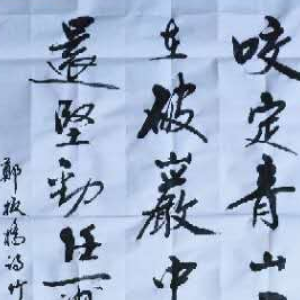 咬定青山
在破巖中
還堅勁任
鄭板橋詩竹